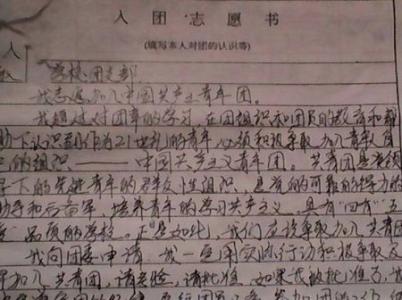 入团志愿书
(填写本人对团的认识等)
人
学校团支部
我志愿加入中国共产主义青年团。
我通过对团章的学习,在团组织和团员的教育和帮
助下认识到作为21世纪的青年,必须积极争取加入青年自
己的组织——中国共产主义青年团。共青团是党领
导下的先进青年的群众性组织,是党的可靠的得力的
助手和后备军,培养青年的学习共产主义,具有“四有”五
品质的学校。正是如此,我们应该争取加入共青团
我向团委申请:我一定用实际行动积极争取及
早加入共青团,请考验,请批准。如果我被批准了,我